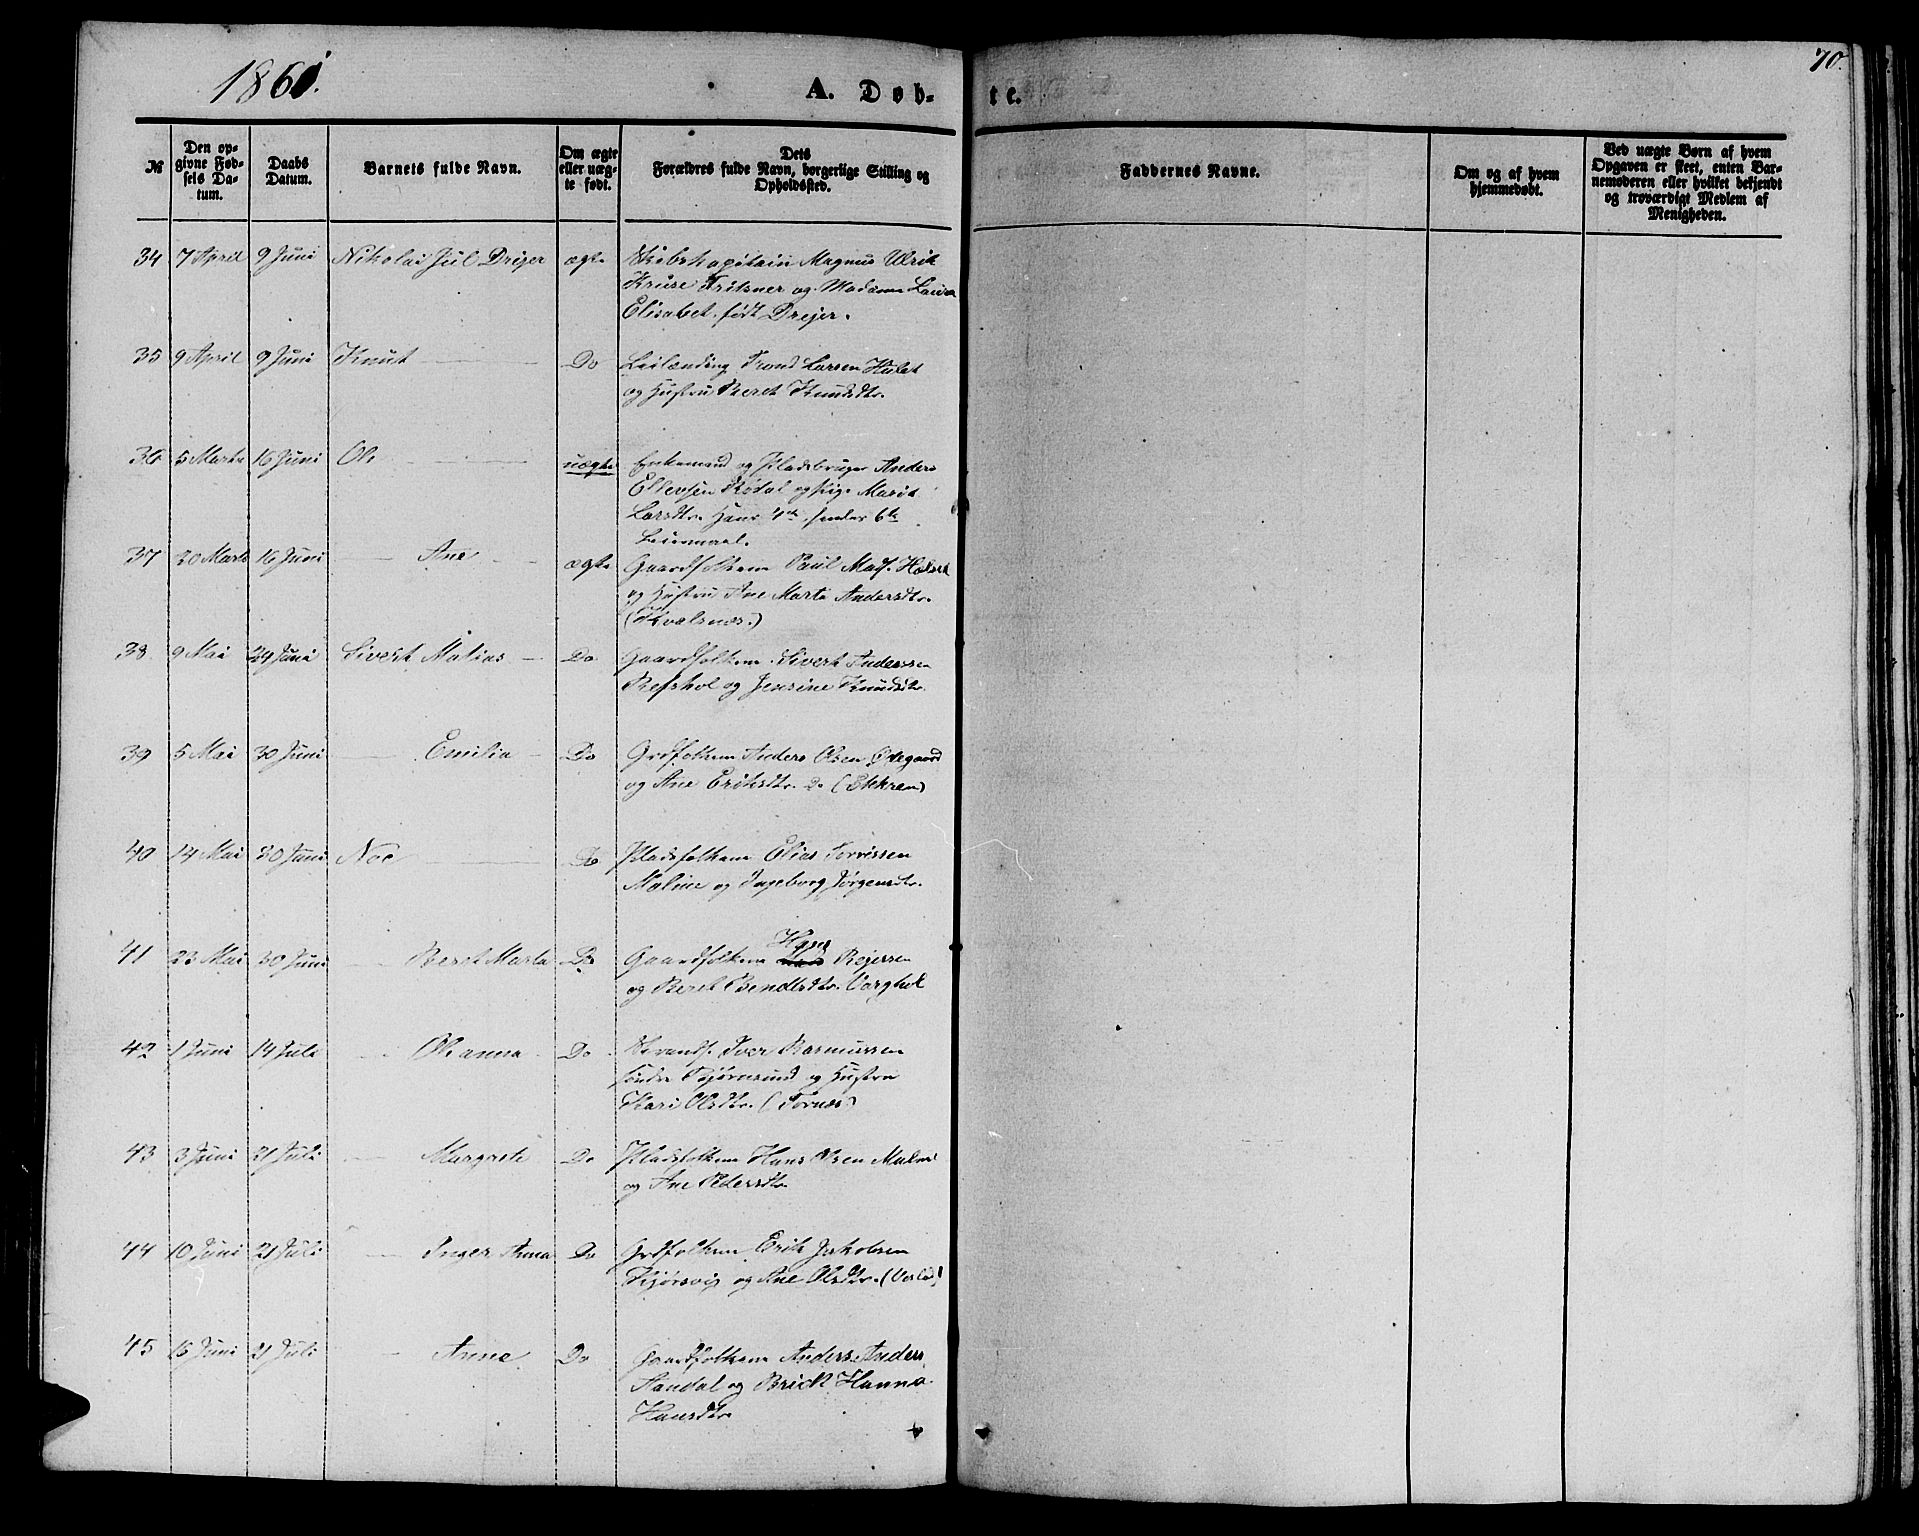 1861.
A. Døb-
te.
70.
№
Den op-
givne Fød-
sels Da-
tum.
Daabs
Datum.
Barnets fulde Navn.
Om ægte
eller uæg-
te født.
Dets
Forældres fulde Navn, borgerlige Stilling og
Opholdssted.
Faddernes Navne.
Om og af hvem
hjemmedøbt.
Ved uægte Børn af hvem
Opgaven er skeet, enten Bar-
nemoderen eller hvilket bekjendt
og troværdigt Medlem af
Menigheden.
34 7 April 9 Juni Nikolai Jul Drejer ægte Skibskapitain Magnus Ulrik
Kruse Fritsner og Madame
Elisabet født Drejer.
35 9 April 9 Juni Knut Do Leilænding Trond Larsen
og Hustru Beret Knudsdtr.
36 5 Marts 16 Juni Ole uægte Enkemand og Pladsbruger Anders
Ellevsen og Pige Marit
Larsdtr. Hans 4de hendes 6te
Leiermaal.
37 20 Marts 16 Juni Ane ægte Gaardfolkene Paul Mads.
og Hustru Ane Marta Andersdtr.
(Kvalsnæs.)
38 9 Mai 29 Juni Sivert Matias Do Gaardfolkene Sivert Anderssen
Refshol og Jensine Knudsdtr.
39 5 Mai 30 Juni Emilia Do Grdfolkene Anders Olsen Ødegaard
og Ane Eriksdtr. Do
40 14 Mai 30 Juni Noe Do Pladsfolkene Elias Torrissen
Malme og Ingeborg Jørgensdtr.
41 23 Mai 30 Juni Beret Marta Do Gaardfolkene Hans Rejersen
og Beret Bendtsdtr. Varghol
42 1 Juni 14 Juli Olianna Do Strands. Iver Rasmussen
søndre Bjørnsund og Hustru
Kari Olsdtr. (Tornæs)
43 3 Juni 21 Juli Margrete Do Pladsfolkene Hans Olsen
og Ane Pedersdtr.
44 10 Juni 21 Juli Inger Anna Do Grdfolkene Erik Jakobsen
og Ane Olsdtr.
45 15 Juni 21 Juli Anne Do Gaardfolkene Anders Anders.
Aandal og Brick Hanna
Hansdtr.